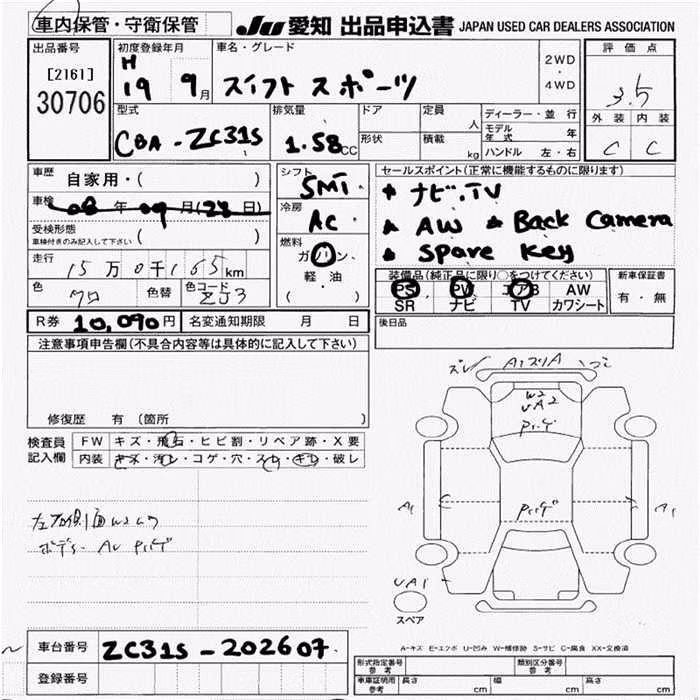 車内保管・守衛保管
JU 愛知 出品申込書 JAPAN USED CAR DEALERS ASSOCIATION
出品番号
[2161]
30706
初度登録年月
H
19 9月
車名・グレード
スイフト スポーツ
2WD
・
4WD
評価点
3.5
外装 内装
C C
型式
CBA-ZC31S
排気量
1.58cc
ドア
形状
定員
人
積載
kg
ディーラー・並行
モデル年式 年
ハンドル 左・右
車歴
自家用・( )
車検
08年09月(28日)
受検形態
車検付きのみ記入して下さい ( )
走行
15万0千165km
色
クロ
色替
色コード
ZJ3
シフト
5MT
冷房
AC
燃料
ガソリン
・
軽・油
( )
セールスポイント(正常に機能するものに限ります)
ナビ.TV
AW Back Camera
Spare Key
装備品(純正品に限り○をつけてください)
PS PW エアB AW
SR ナビ TV カワシート
新車保証書
有・無
R券 10,090円
名変通知期限 月 日
後日品
注意事項申告欄(不具合内容等は具体的に記入して下さい)
修復歴 有(箇所 )
検査員記入欄
FW キズ・飛石・ヒビ割・リペア跡・X要
内装 キズ・汚れ・コゲ・穴・スレ・キレ・破レ
ズレ
W2
UA2
A1
A1
UA1
スペア
A-キズ E-エクボ U-凹み W-補修跡 S-サビ C-腐食 XX-交換済
車台番号
ZC31S-202607
登録番号
形式指定番号
参考
類別区分番号
参考
車庫証明用
参考
長さ cm 幅 cm 高さ cm